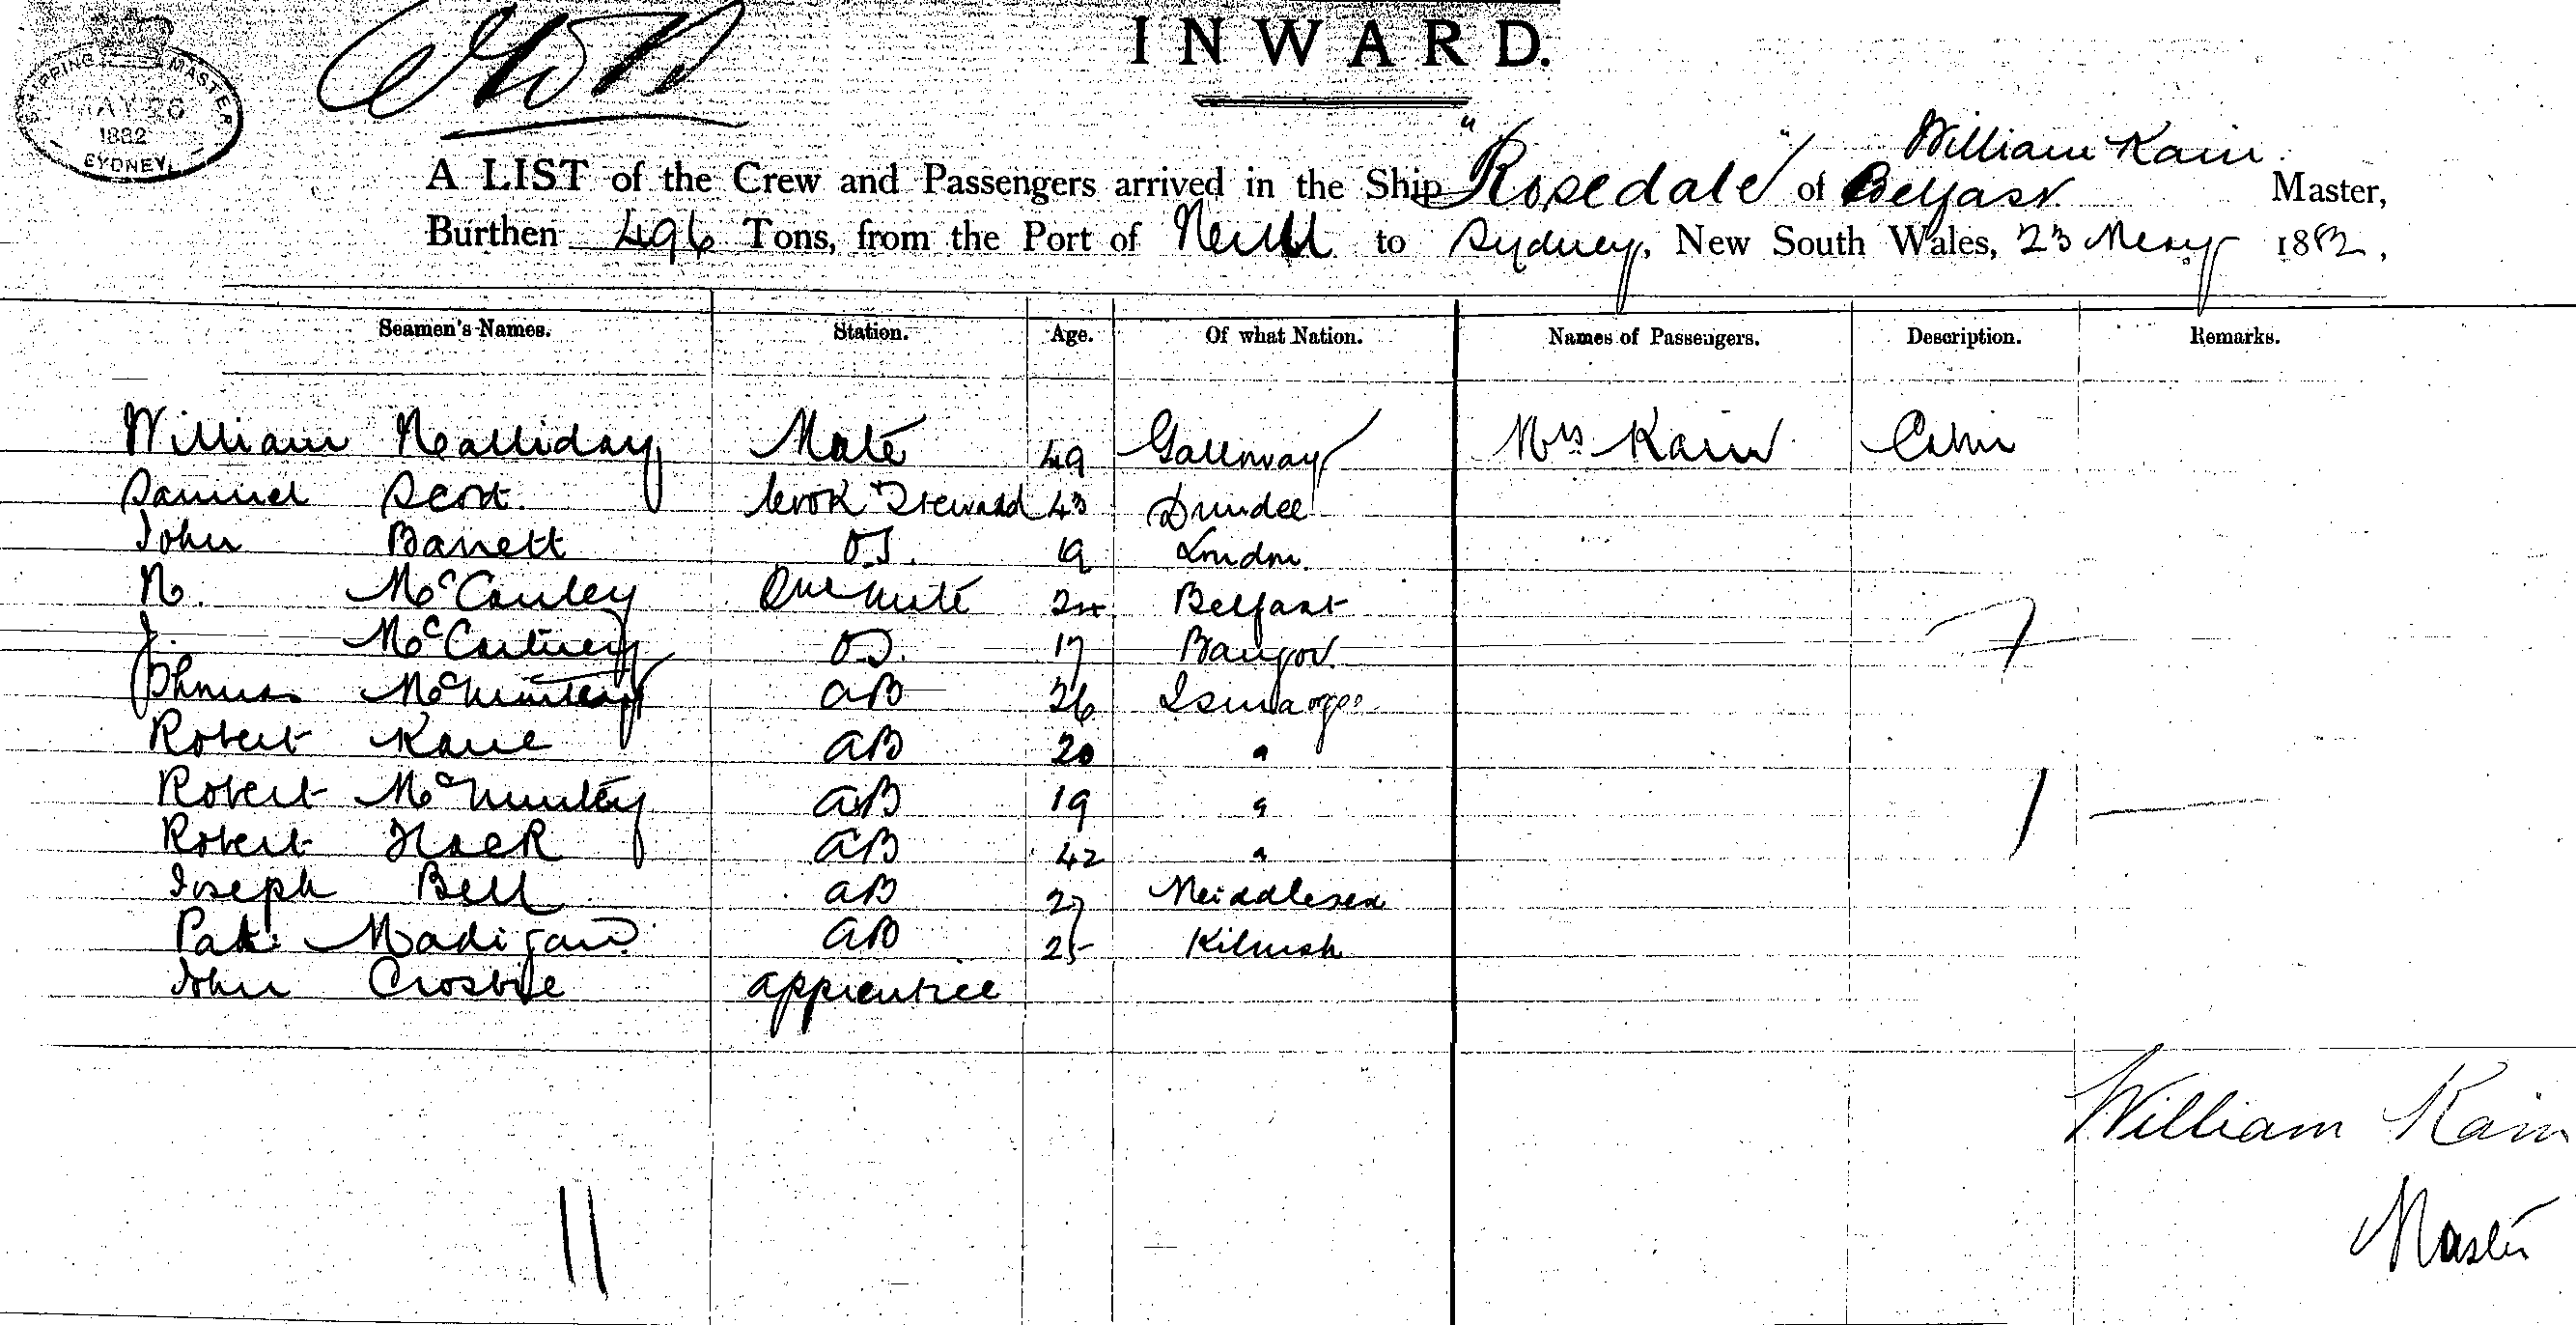 SHIPPING MASTER
MAY 26
1882
SYDNEY
INWARD.
William Kain
A LIST of the Crew and Passengers arrived in the Ship "Rosedale" of Belfast Master,
Burthen 496 Tons, from the Port of to Sydney, New South Wales, 23 May 1882,
Seamen's Names. Station. Age. Of what Nation. Names of Passengers. Description. Remarks.
William Halliday Mate 49 Galloway Mrs Kain Cabin
Samuel Scott Cook Steward 43 Dundee
John Barrett O.S. 19 London
N. McCauley 2nd Mate 24 Belfast
J. McCartney O.S. 17 Bangor
Thomas AB 26
Robert Kane AB 20 "
Robert AB 19 "
Robert AB 42 "
Joseph Bell AB 27 Middlesex
Pat. Madigan AB 25 Kilrush
John Crosbie apprentice
William Kain
Master
11